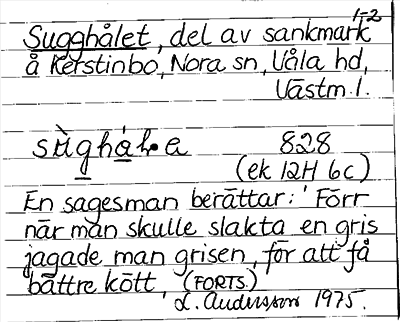 1-2
Sugghålet, del av sankmark
å Kerstinbo, Nora sn, Våla hd,
Västm. l.
sùghá̱l·e 828
(ek 12H 6c)
En sagesman berättar: 'Förr
när man skulle slakta en gris
jagade man grisen, för att få
bättre kött, (FORTS.)
L. Andersson 1975.